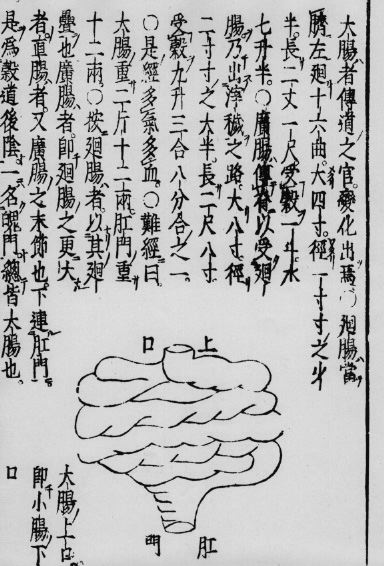 大腸者傳道之官變化出焉○廻腸當
臍左廻十六曲大四寸徑一寸寸之少
半長二丈一尺受穀一斗水
七升半○廣腸傳脊以受廻
腸乃出滓穢之路大八寸徑
二寸寸之大半長二尺八寸
受穀九升三合八分合之一
○是經多氣多血○難經曰
大腸重二斤十二兩肛門重
十二兩○按廻腸者以其廻
疊也廣腸者即廻腸之更大
者直腸者又廣腸之末節也下連肛門
是為穀道後陰一名魄門總皆大腸也
上口
肛門
大腸上口
即小腸下
口